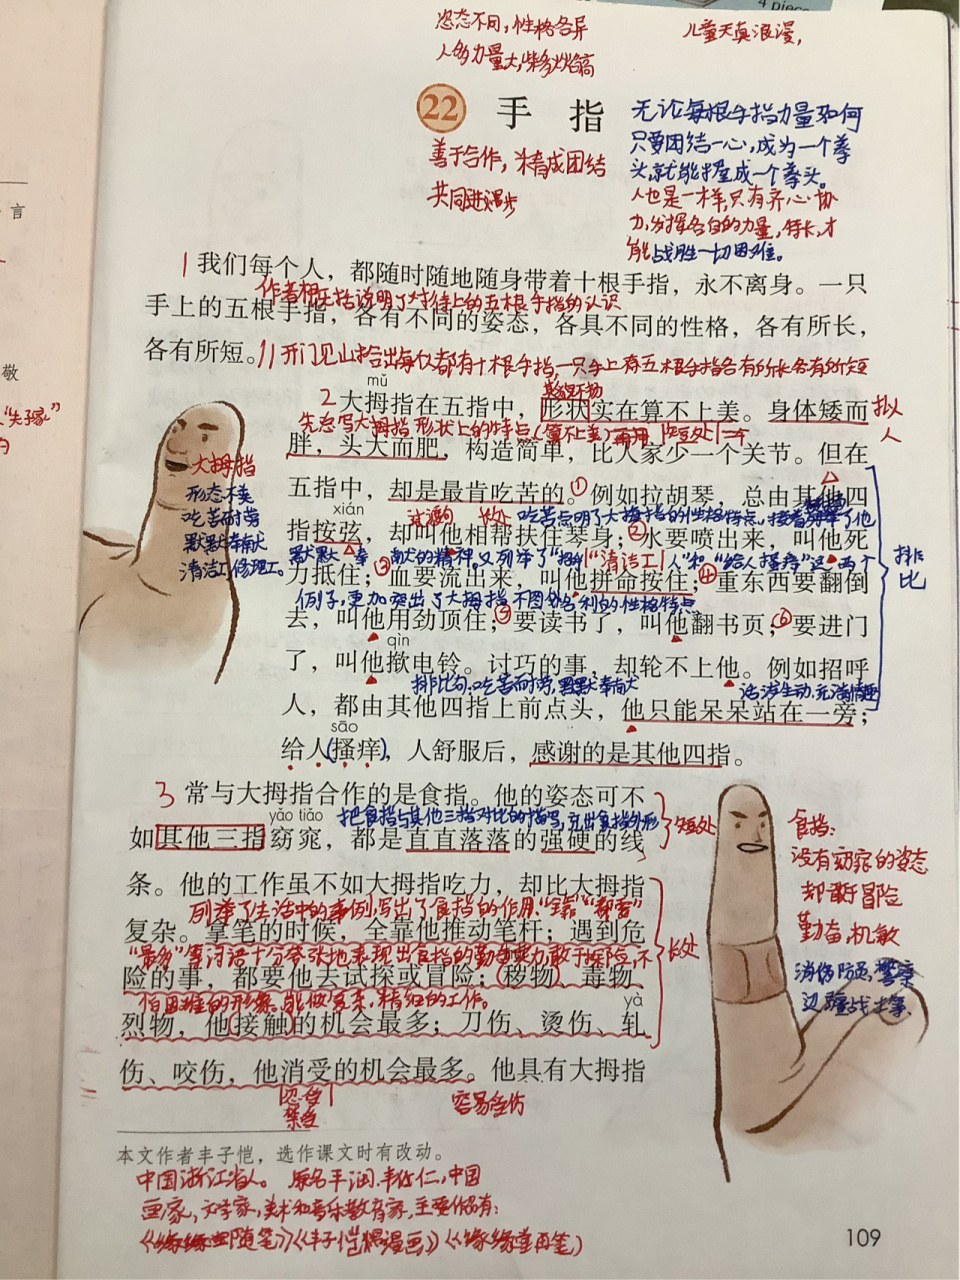 4 piece
姿态不同，性格各异
人多力量大，柴多火焰高
儿童天真浪漫，
22 手指
善于合作，才有成团结
共同进步
无论每根手指力量如何
只要团结一心，成为一个拳
头，就能握成一个拳头。
人也是一样，只有齐心协
力，发挥各自的力量，特长，才
能战胜一切困难。
言
敬
1 我们每个人，都随时随地随身带着十根手指，永不离身。一只
手上的五根手指，各有不同的姿态，各具不同的性格，各有所长，
各有所短。
开门见山给出每人都有十根手指，一只手上有五根手指各有所长各有所短
mǔ
2 大拇指在五指中，形状实在算不上美。身体矮而
拟人
胖，头大而肥，构造简单，比人家少一个关节。但在
五指中，却是最肯吃苦的。①例如拉胡琴，总由其他四
过渡句 长处 吃苦点明了大拇指的性格特点，接着列举了他
xián
指按弦，却叫他相帮扶住琴身；②水要喷出来，叫他死
力抵住；③血要流出来，叫他拼命按住；④重东西要翻倒
例子，更加突出了大拇指不图名利的性格特点
去，叫他用劲顶住；⑤要读书了，叫他翻书页；⑥要进门
qìn
了，叫他揿电铃。讨巧的事，却轮不上他。例如招呼
排比句，吃苦耐劳，默默奉献
人，都由其他四指上前点头，他只能呆呆站在一旁；
sāo
给人(搔痒)，人舒服后，感谢的是其他四指。
排比
大拇指
形态不美
吃苦耐劳
默默奉献
清洁工，修理工。
3 常与大拇指合作的是食指。他的姿态可不
把食指与其他三指对比的描写，突出食指外形
短处
yǎo tiǎo
如其他三指窈窕，都是直直落落的强硬的线
条。他的工作虽不如大拇指吃力，却比大拇指
列举了生活中的事例，写出了食指的作用，“全靠”“都要”
复杂。拿笔的时候，全靠他推动笔杆；遇到危
长处
险的事，都要他去试探或冒险；(秽物)、毒物、
yà
烈物，他(接触)的机会最多；刀伤、烫伤、轧
伤、咬伤，他消受的机会最多。他具有大拇指
忍受
禁受
容易受伤
食指：
没有窈窕的姿态
却敢于冒险
勤奋，机敏
消防队员，警察
边疆战士等.
本文作者丰子恺，选作课文时有改动。
中国浙江省人。 原名丰润.丰仁，中国
画家，文学家，美术和音乐教育家，主要作品有：
109